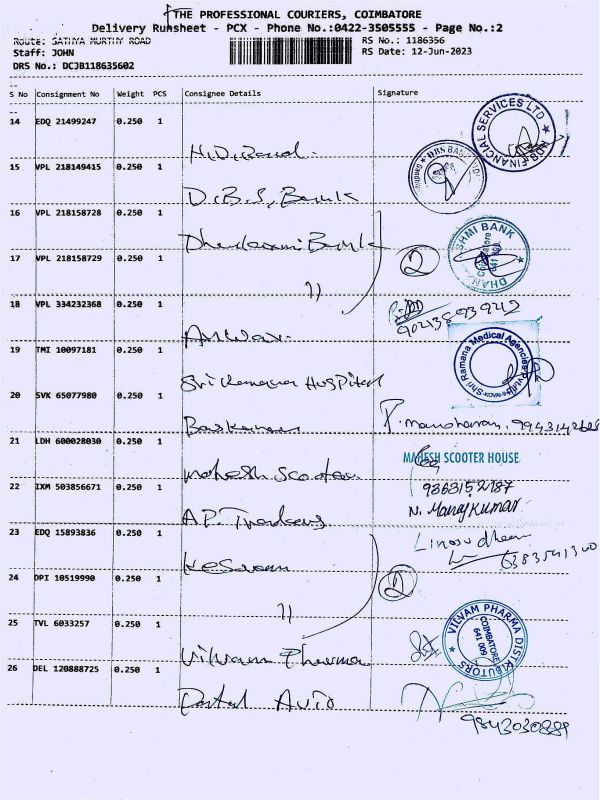 THE PROFESSIONAL COURIERS, COIMBATORE
Delivery Runsheet - PCX - Phone No.:0422-3505555 - Page No.:2
Route: SATHYA MURTHY ROAD
RS No.: 1186356
Staff: JOHN
RS Date: 12-Jun-2023
DRS No.: DCJB118635602
S No Consignment No Weight PCS Consignee Details Signature
14 EDQ 21499247 0.250 1
HDB FINANCIAL SERVICES LTD
15 VPL 218149415 0.250 1
D.B.S, Bank
DBS BANK
16 VPL 218158728 0.250 1
Dhanlaxmi Bank
DHANLAKSHMI BANK
Coimbatore
641 001
17 VPL 218158729 0.250 1
11
2
18 VPL 334232368 0.250 1
Anwar.
19 TMI 10097181 0.250 1
Sri Ramana Hospital
Shri Ramana Medical Agencies Pvt Ltd
20 SVK 65077980 0.250 1
P. manoharan,
21 LDH 600028030 0.250 1
Mahesh Scooter
MAHESH SCOOTER HOUSE
22 IXM 503856671 0.250 1
A.P. Traders
9363152187
N. Manoj Kumar
23 EDQ 15893836 0.250 1
Kesavan
24 DPI 10519990 0.250 1
11
2
6383541300
25 TVL 6033257 0.250 1
Vilvam Pharma
VILVAM PHARMA DISTRIBUTORS
COIMBATORE
641 009
26 DEL 120888725 0.250 1
Postal Auto
9843030889